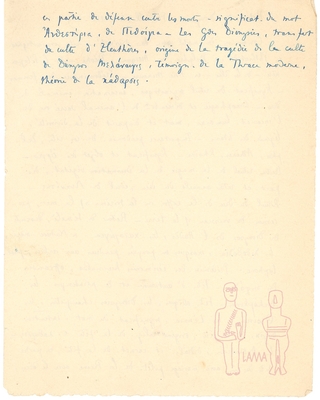 en partie de défense contre les morts - signification du mot
Ἀνθεστήρια, de Πιθοίγια - Les Gdes Dionysies, transfert
du culte d'Eleuthères, origine de la tragédie de la culte
de Dionysos Μελάναιγις, témoign. de la Thrace moderne,
théorie de la κάθαρσις.
LAMA